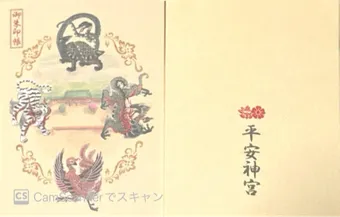 御朱印帳
平安神宮
CS CamScannerでスキャン